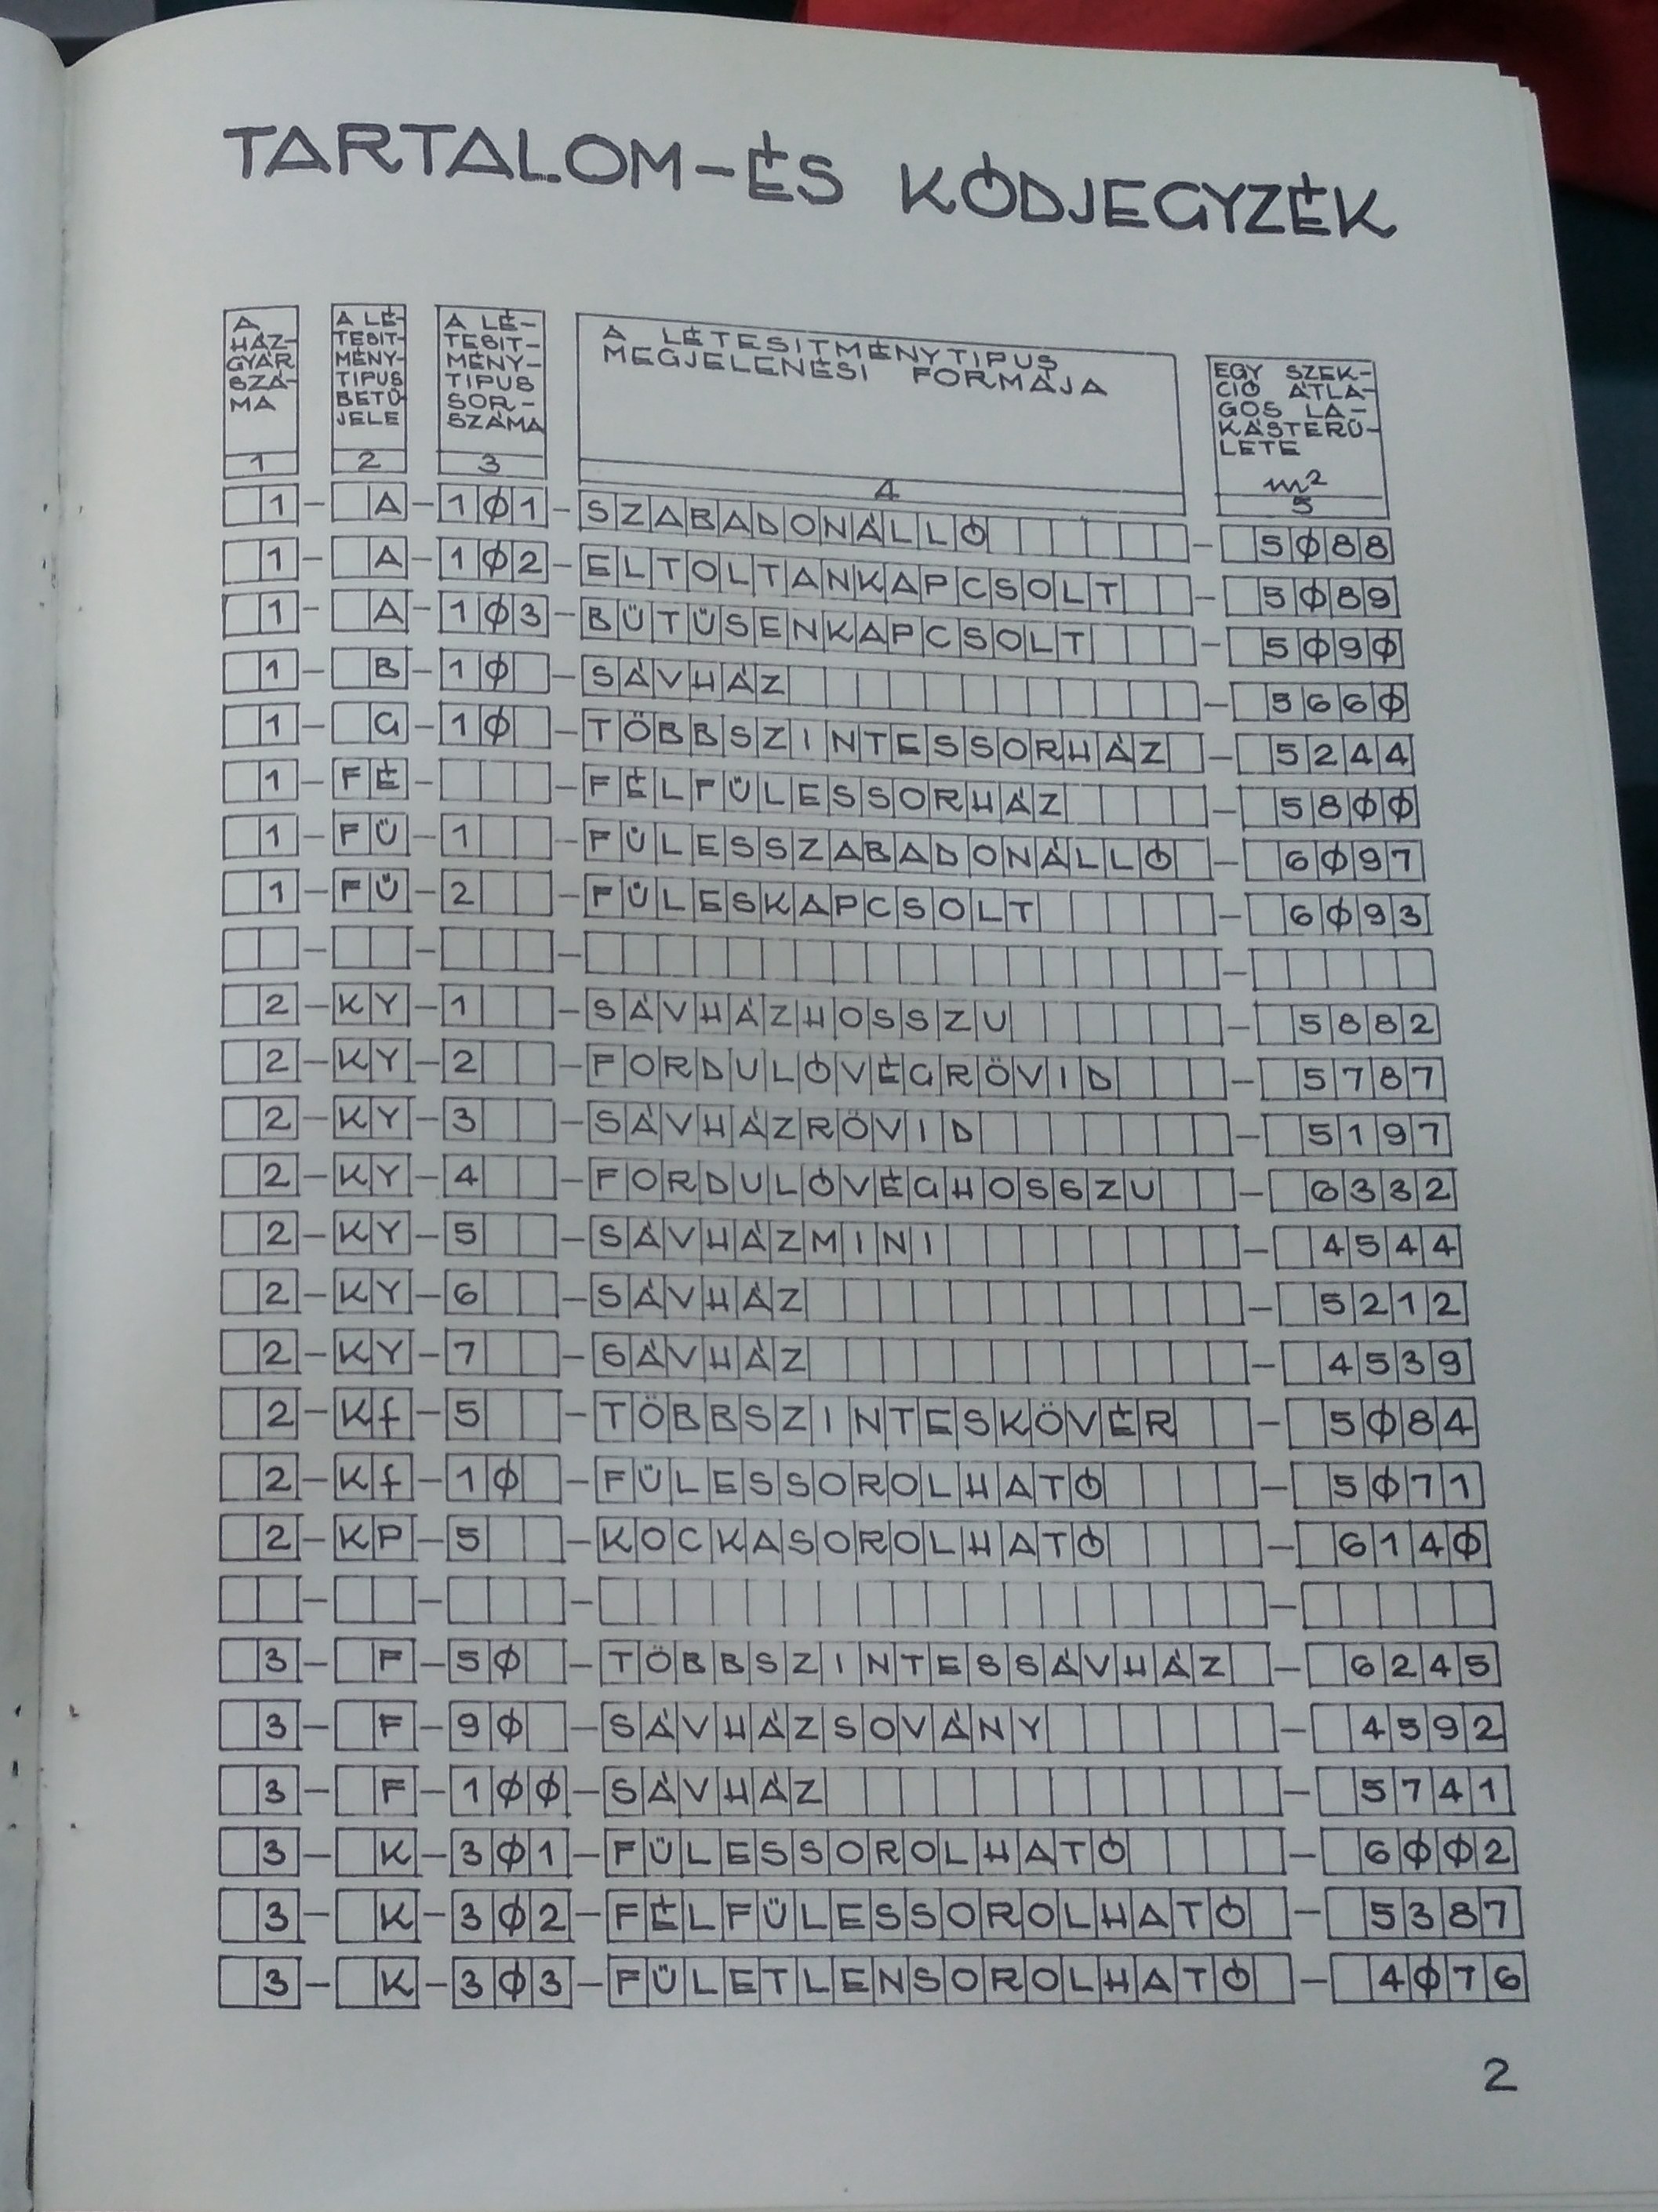 TARTALOM-ÉS KÓDJEGYZÉK
A
HÁZ-
GYÁR
SZÁ-
MA
1
A LÉ-
TESIT-
MÉNY-
TIPUS
BETŰ
JELE
2
A LÉ-
TESIT-
MÉNY-
TIPUS
SOR-
SZÁMA
3
A LÉTESITMÉNYTIPUS
MEGJELENÉSI FORMÁJA
4
EGY SZEK-
CIÓ ÁTLA-
GOS LA-
KÁSTERÜ-
LETE
m²
5
1-A-1Ø1-SZABADONÁLLÓ-5Ø88
1-A-1Ø2-ELTOLTANKAPCSOLT-5Ø89
1-A-1Ø3-BÜTÜSENKAPCSOLT-5Ø9Ø
1-B-1Ø-SÁVHÁZ-566Ø
1-G-1Ø-TÖBBSZINTESSORHÁZ-5244
1-FÉ-FÉLFÜLESSORHÁZ-58ØØ
1-FÜ-1-FÜLESSZABADONÁLLÓ-6Ø97
1-FÜ-2-FÜLESKAPCSOLT-6Ø93
2-KY-1-SÁVHÁZHOSSZU-5882
2-KY-2-FORDULÓVÉGRÖVID-5787
2-KY-3-SÁVHÁZRÖVID-5197
2-KY-4-FORDULÓVÉGHOSSZU-6332
2-KY-5-SÁVHÁZMINI-4544
2-KY-6-SÁVHÁZ-5212
2-KY-7-SÁVHÁZ-4539
2-Kf-5-TÖBBSZINTESKÖVÉR-5Ø84
2-Kf-1Ø-FÜLESSOROLHATÓ-5Ø71
2-KP-5-KOCKASOROLHATÓ-614Ø
3-F-5Ø-TÖBBSZINTESSÁVHÁZ-6245
3-F-9Ø-SÁVHÁZSOVÁNY-4592
3-F-1ØØ-SÁVHÁZ-5741
3-K-3Ø1-FÜLESSOROLHATÓ-6ØØ2
3-K-3Ø2-FÉLFÜLESSOROLHATÓ-5387
3-K-3Ø3-FÜLETLENSOROLHATÓ-4Ø76
2